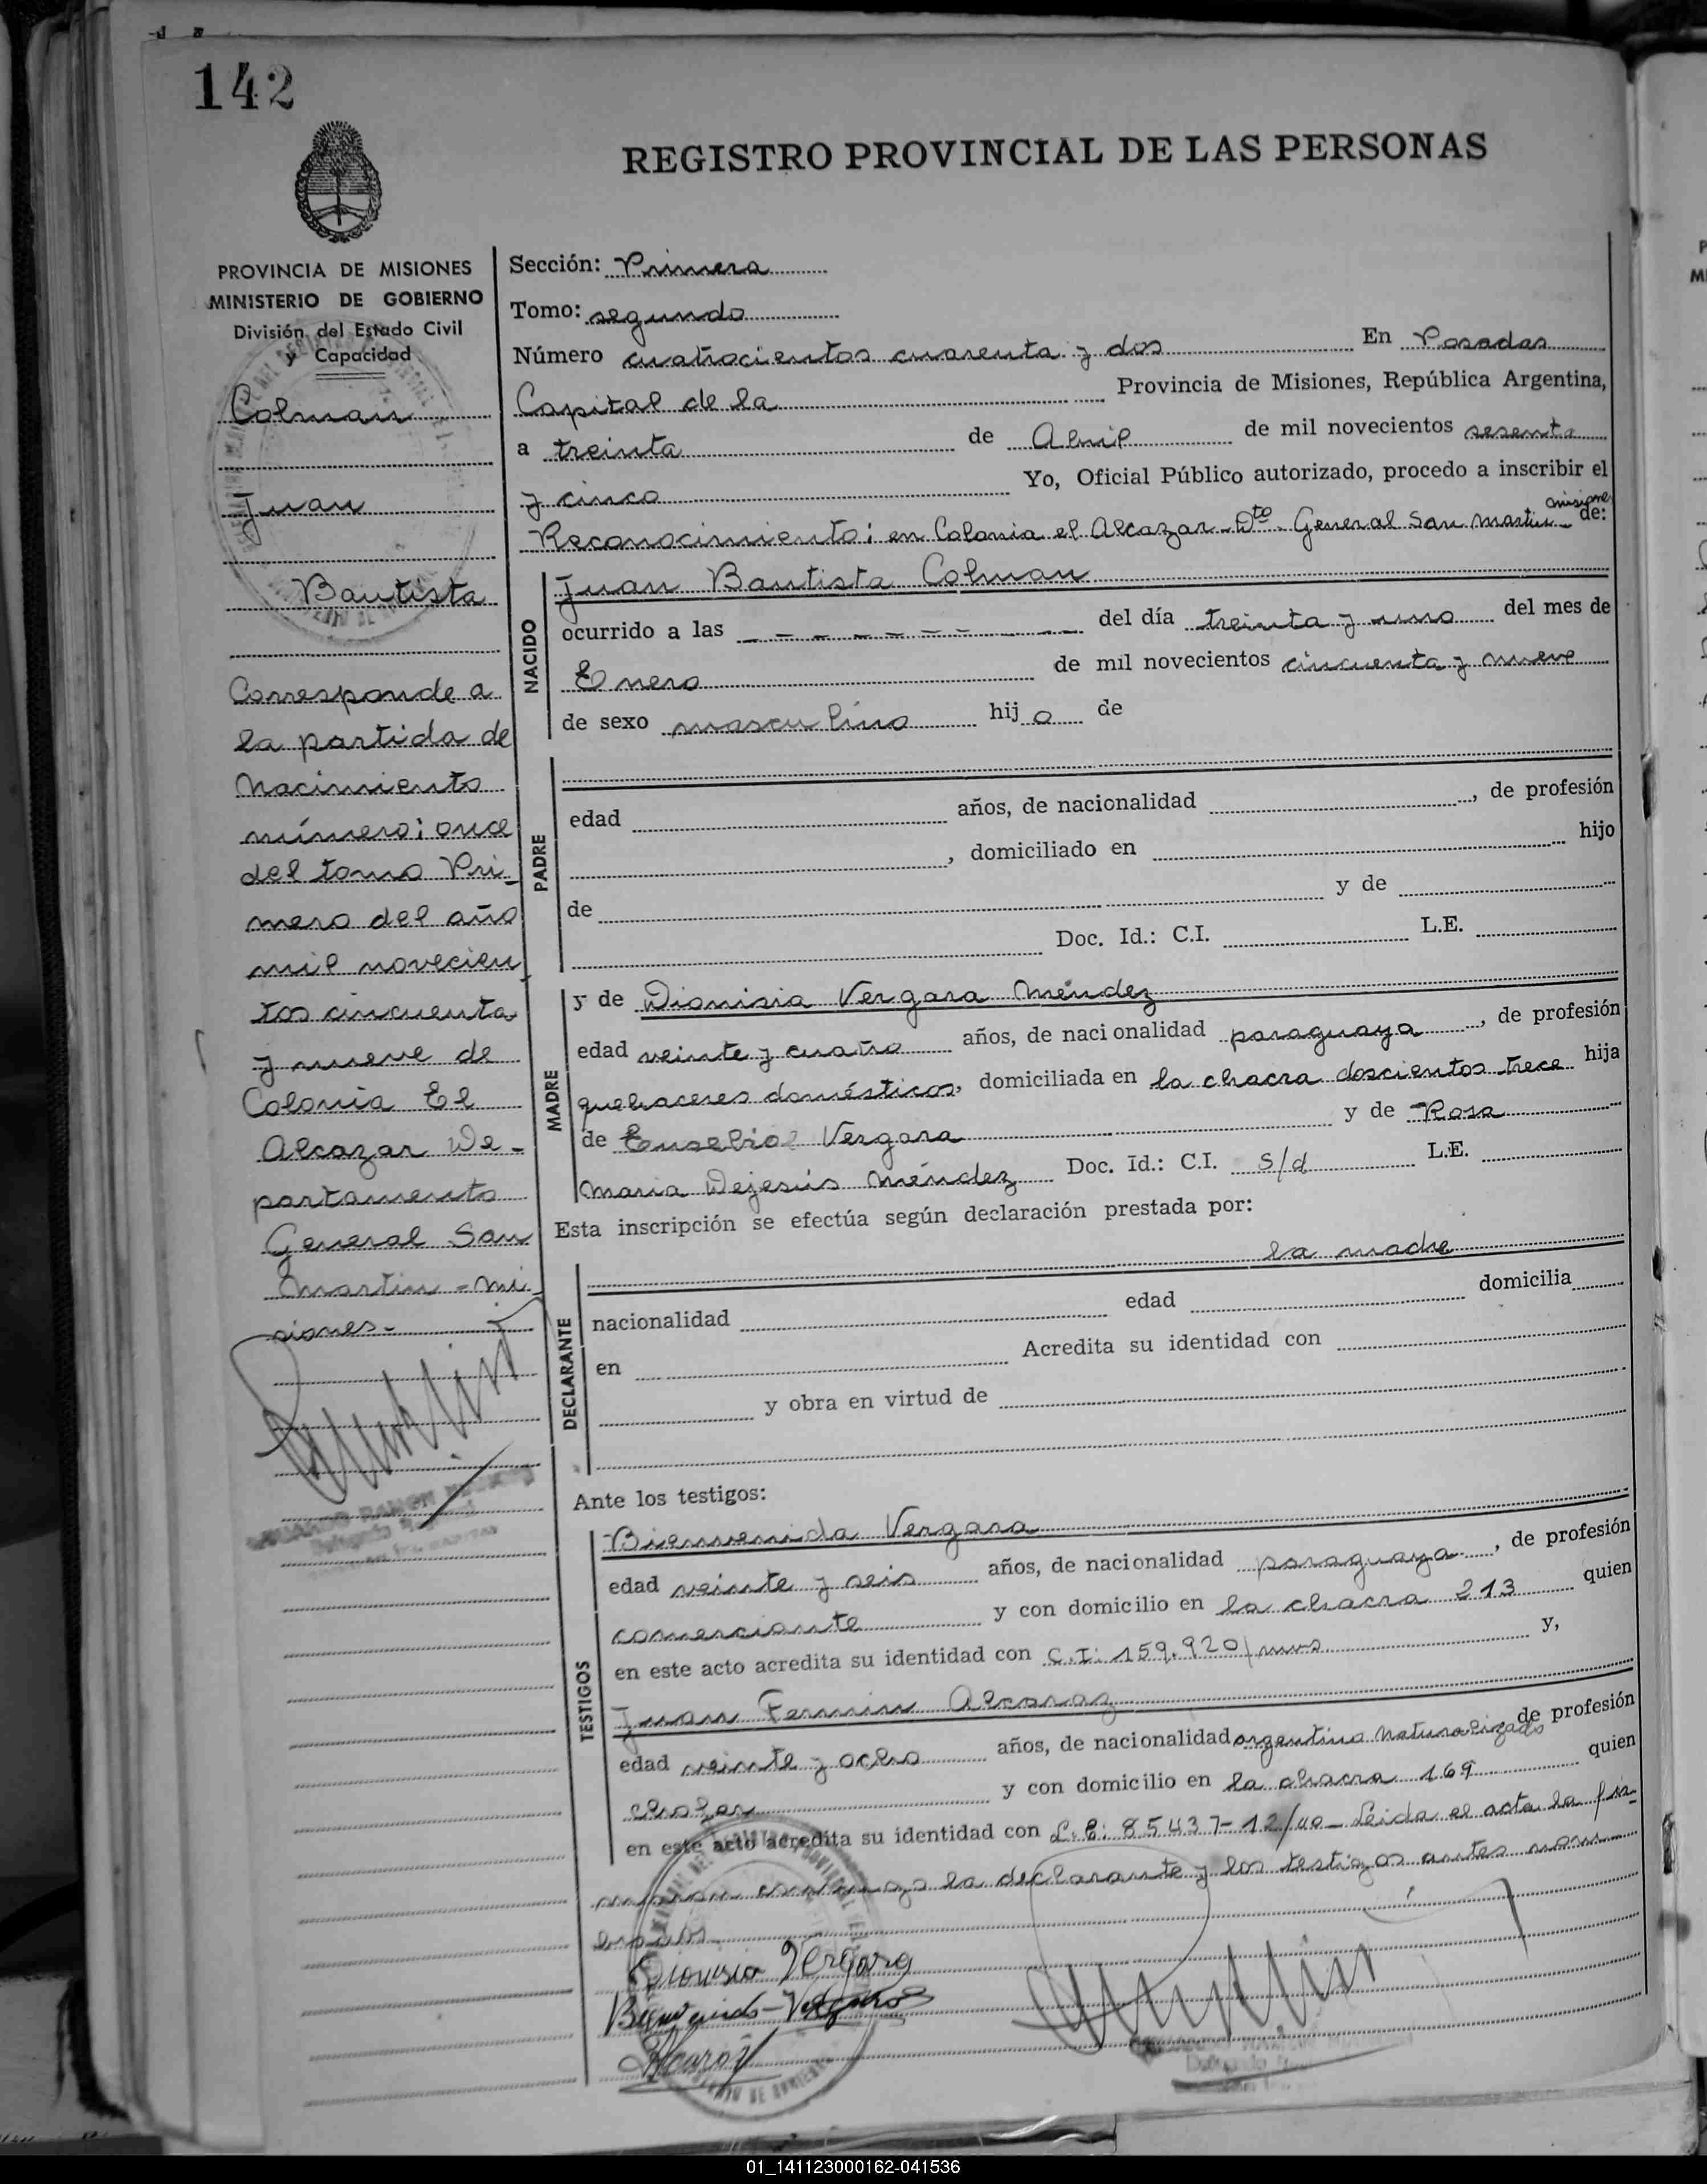 142
REGISTRO PROVINCIAL DE LAS PERSONAS
PROVINCIA DE MISIONES
MINISTERIO DE GOBIERNO
División del Estado Civil
y Capacidad
Colman
Juan
Bautista
Corresponde a
la partida de
Nacimiento
número: once
del tomo Pri-
mero del año
mil novecien-
tos cincuenta
y nueve de
Colonia El
Alcazar De-
partamento
General San
Martin - Mi-
siones.-
Sección: Primera
Tomo: segundo
Número cuatrocientos cuarenta y dos En Posadas
Capital de la Provincia de Misiones, República Argentina,
a treinta de Abril de mil novecientos sesenta
y cinco Yo, Oficial Público autorizado, procedo a inscribir el
Reconocimiento: en Colonia el Alcazar - Dto. General San Martin - Misiones de:
NACIDO
Juan Bautista Colman
ocurrido a las del día treinta y uno del mes de
Enero de mil novecientos cincuenta y nueve
de sexo masculino hijo de
PADRE
edad años, de nacionalidad , de profesión
, domiciliado en hijo
de y de
Doc. Id.: C.I. L.E.
MADRE
y de Dionisia Vergara Méndez
edad veinte y cuatro años, de nacionalidad paraguaya , de profesión
quehaceres domésticos, domiciliada en la chacra doscientos trece hija
de Eusebio Vergara y de Rosa
Maria Dejesús Méndez Doc. Id.: C.I. s/d L.E.
Esta inscripción se efectúa según declaración prestada por:
la madre
DECLARANTE
nacionalidad edad domicilia
en Acredita su identidad con
y obra en virtud de
Ante los testigos:
TESTIGOS
Bienvenida Vergara
edad veinte y seis años, de nacionalidad paraguaya , de profesión
comerciante y con domicilio en la chacra 213 quien
en este acto acredita su identidad con C.I: 159.920/mnes y,
Juan Fermin Alcaraz
edad veinte y ocho años, de nacionalidad argentino Naturalizado de profesión
chofer y con domicilio en la chacra 169 quien
en este acto acredita su identidad con L.E: 85437-12/40- Leida el acta la fir-
maron conmigo la declarante y los testigos antes nom-
brados.
Dionisia Vergara
Bienvenida Vergara
Alcaraz
01_141123000162-041536